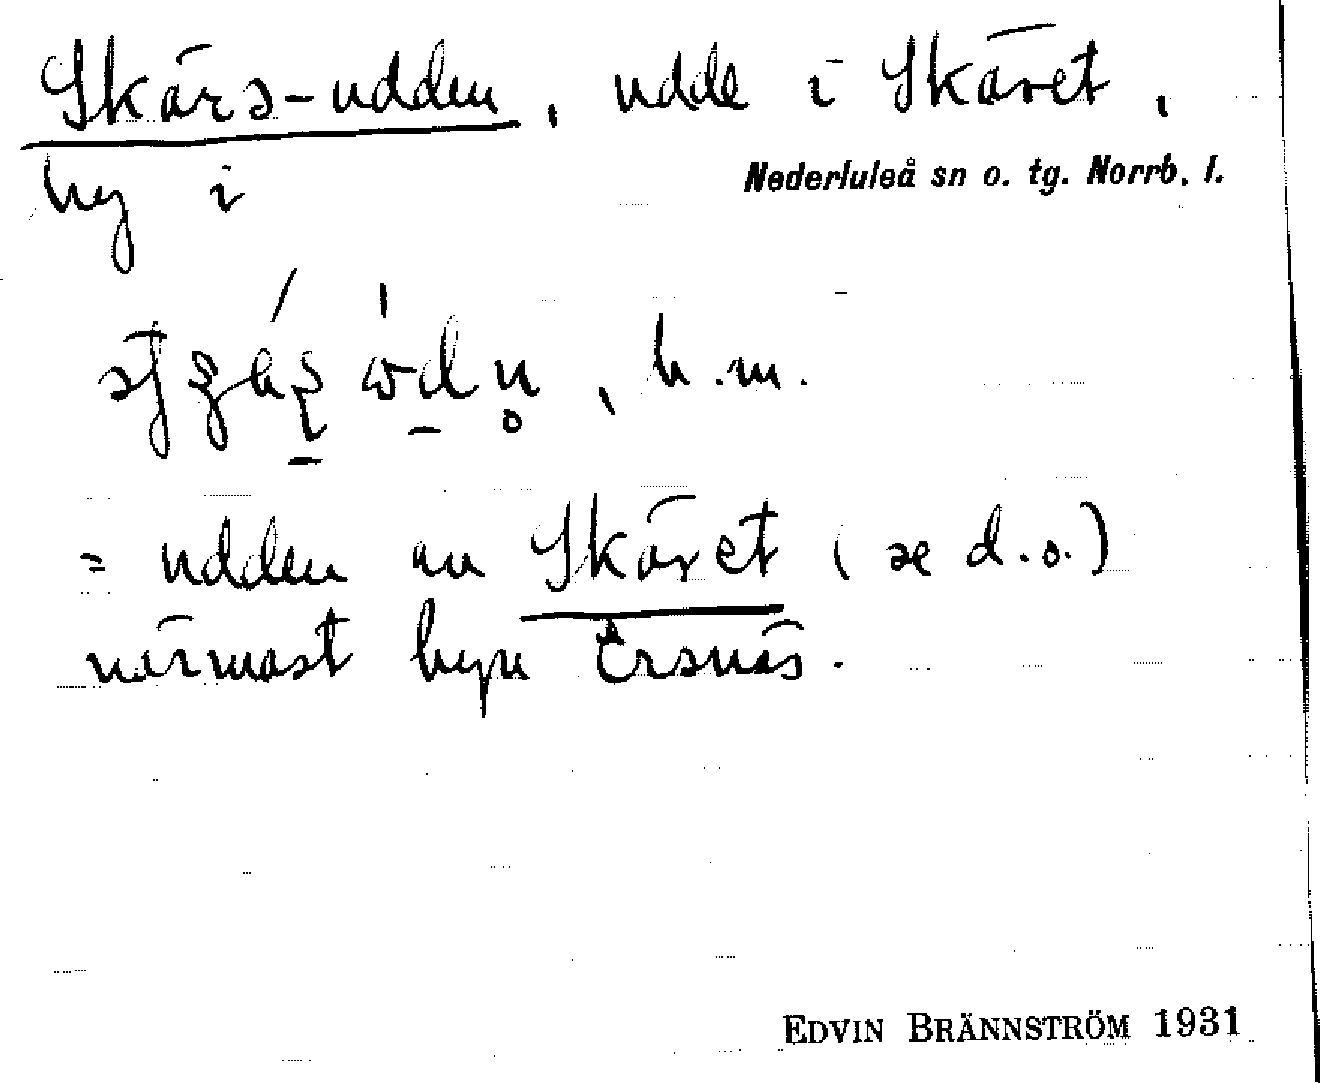 Skärs-udden, udde i Skäret,
by i Nederluleå sn o. tg. Norrb. l.
h.m.
= udden av Skäret (se d.o.)
närmast byn Ersnäs.
EDVIN BRÄNNSTRÖM 1931